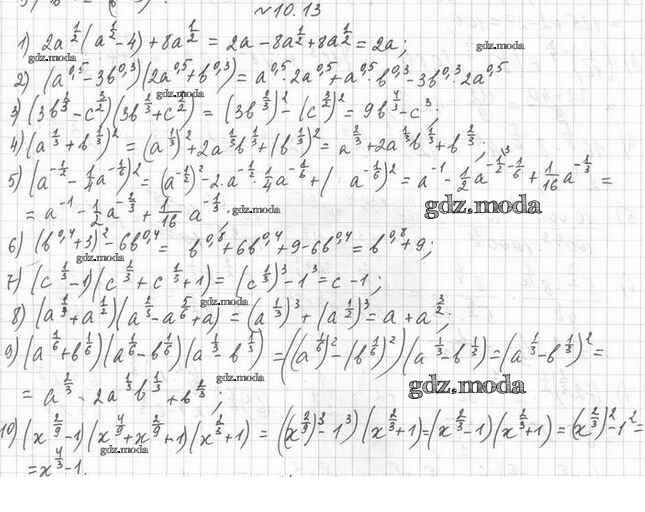 №10.13
1) 2a^{1/2}(a^{1/2}-4)+8a^{1/2} = 2a-8a^{1/2}+8a^{1/2}=2a;
gdz.moda gdz.moda
2) (a^{0,5}-3b^{0,3})(2a^{0,5}+b^{0,3})=a^{0,5}·2a^{0,5}+a^{0,5}·b^{0,3}-3b^{0,3}·2a^{0,5}
3) (3b^{2/3}-c^{3/2})(3b^{2/3}+c^{3/2}) = (3b^{2/3})^2-(c^{3/2})^2=9b^{4/3}-c^3;
4) (a^{1/3}+b^{1/3})^2=(a^{1/3})^2+2a^{1/3}b^{1/3}+(b^{1/3})^2=a^{2/3}+2a^{1/3}b^{1/3}+b^{2/3};
5) (a^{-1/2}-1/4a^{-1/6})^2=(a^{-1/2})^2-2·a^{-1/2}·1/4a^{-1/6}+( a^{-1/6})^2=a^{-1}-1/2a^{-1/2-1/6}+1/16a^{-1/3}=
=a^{-1}-1/2a^{-2/3}+1/16 a^{-1/3}.
gdz.moda gdz.moda
6) (b^{0,4}+3)^2-6b^{0,4}= b^{0,8}+6b^{0,4}+9-6b^{0,4}=b^{0,8}+9;
gdz.moda
7) (c^{1/3}-1)(c^{2/3}+c^{1/3}+1)=(c^{1/3})^3-1^3=c-1;
gdz.moda
8) (a^{1/3}+a^{1/2})(a^{2/3}-a^{5/6}+a)=(a^{1/3})^3+(a^{1/2})^3=a+a^{3/2};
9) (a^{1/6}+b^{1/6})(a^{1/6}-b^{1/6})(a^{1/3}-b^{1/3})=((a^{1/6})^2-(b^{1/6})^2)(a^{1/3}-b^{1/3})=(a^{1/3}-b^{1/3})^2=
gdz.moda gdz.moda
=a^{2/3}-2a^{1/3}b^{1/3}+b^{2/3};
10) (x^{2/9}-1)(x^{4/9}+x^{2/9}+1)(x^{2/3}+1) = ((x^{2/9})^3-1^3)(x^{2/3}+1)=(x^{2/3}-1)(x^{2/3}+1)=(x^{2/3})^2-1^2=
gdz.moda
=x^{4/3}-1.